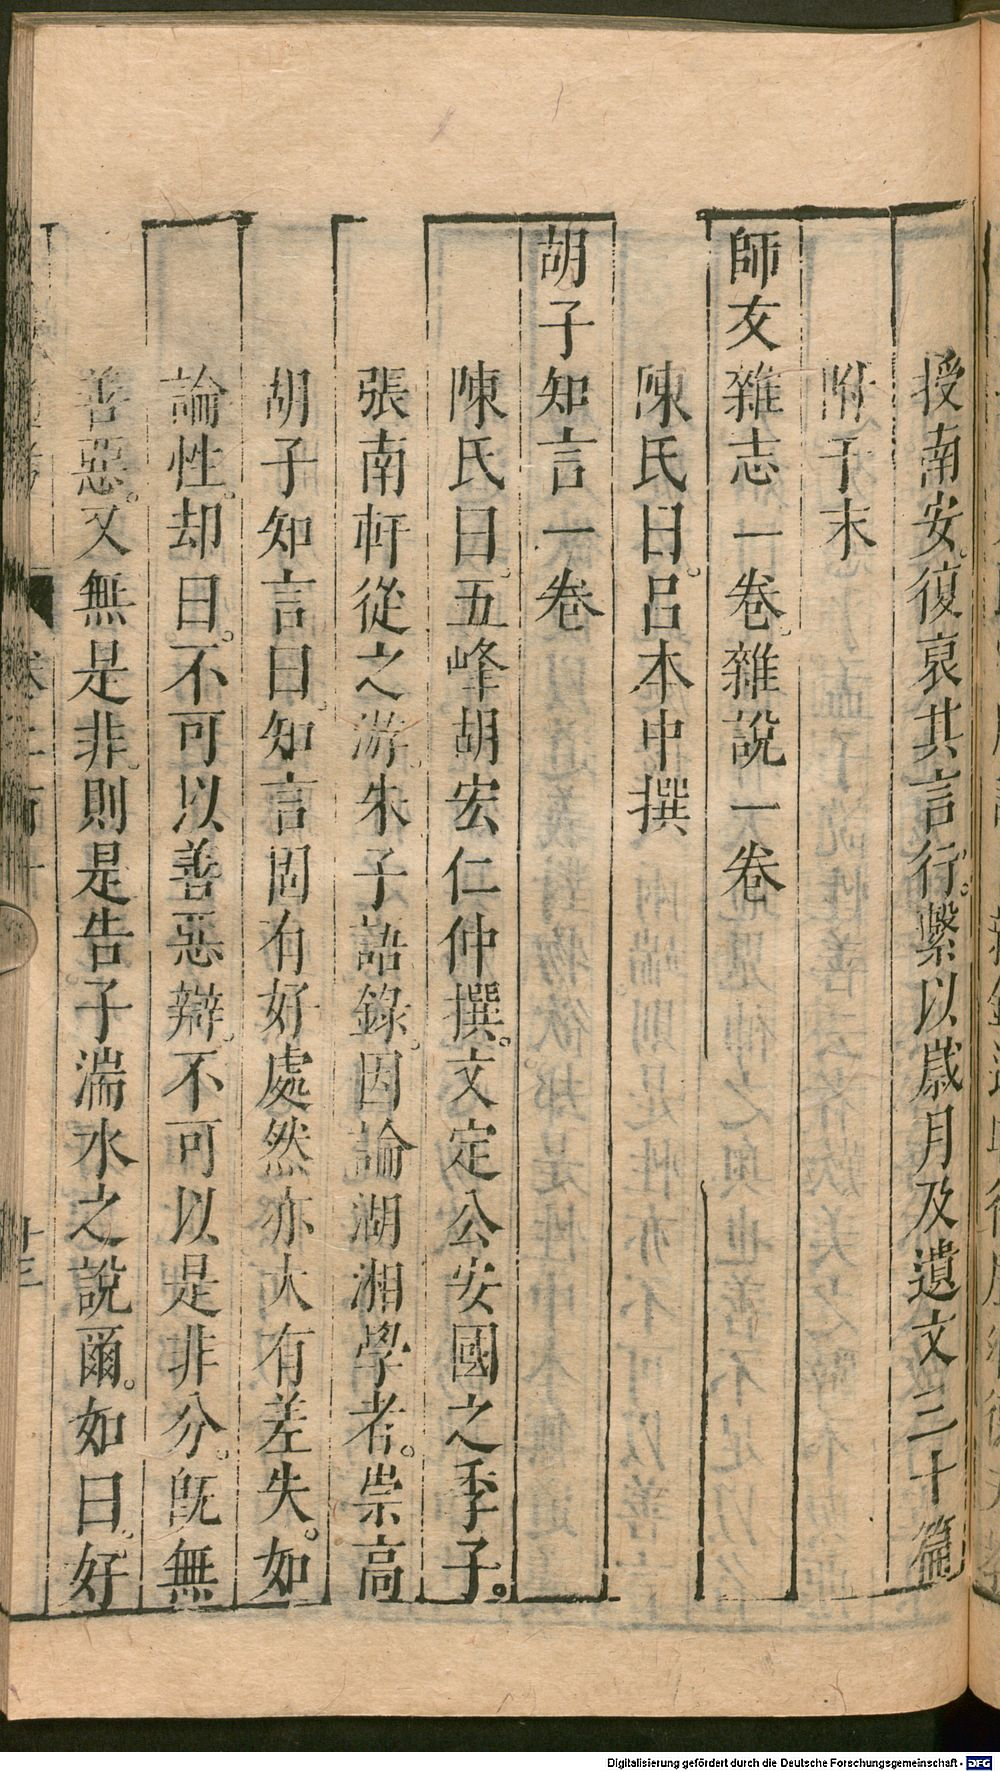 授南安。復裒其言行。繫以歲月及遺文三十篇
附于末
師友雜志一卷。雜說一卷
陳氏曰。呂本中撰
胡子知言一卷
陳氏曰。五峰胡宏仁仲撰。文定公安國之季子。
張南軒從之游。朱子語錄。因論湖湘學者。崇高
胡子知言曰。知言固有好處然亦大有差失。如
論性。却曰。不可以善惡辯。不可以是非分。旣無
善惡。又無是非。則是告子湍水之說爾。如曰。好
Digitalisierung gefördert durch die Deutsche Forschungsgemeinschaft - DFG